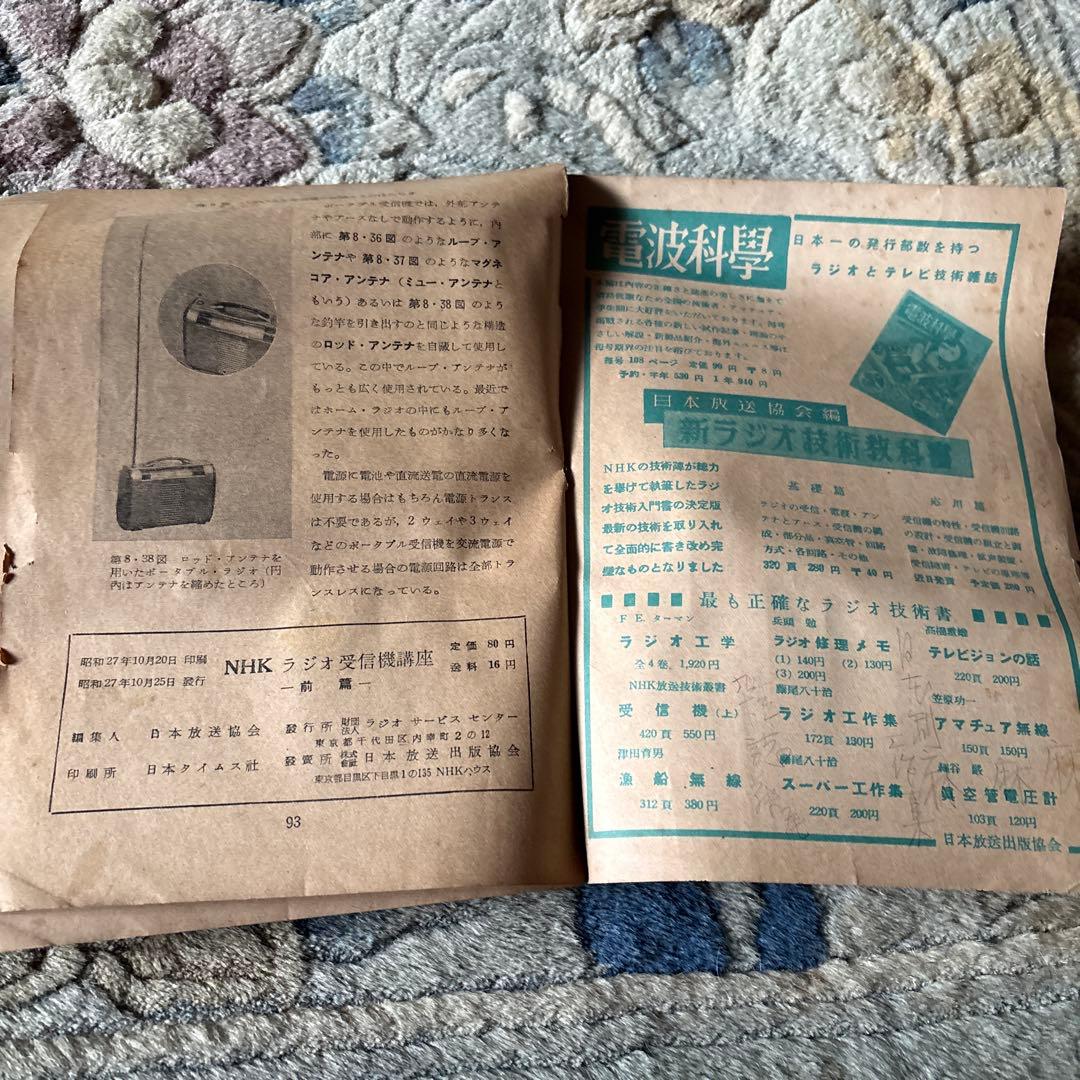 ポータブル受信機では、外部アンテ
ナやアースなしで動作するように、内
部に 第8・36図 のようなループ・ア
ンテナや 第8・37図 のようなマグネ
コア・アンテナ (ミュー・アンテナと
もいう) あるいは 第8・38図 のよう
な釣竿を引き出すのと同じような構造
のロッド・アンテナを自蔵して使用し
ている。この中でループ・アンテナが
もっとも広く使用されている。最近で
はホーム・ラジオの中にもループ・ア
ンテナを使用したものがかなり多くな
った。
電源に電池や直流送電の直流電源を
使用する場合はもちろん電源トランス
は不要であるが、2 ウェイや3ウェイ
などのポータブル受信機を交流電源で
動作させる場合の電源回路は全部トラ
ンスレスになっている。
第8・38図 ロッド・アンテナを
用いたポータブル・ラジオ (円
内はアンテナを縮めたところ)
昭和27年10月20日 印刷
昭和27年10月25日 發行
NHK ラジオ受信機講座
―前 篇―
定価 80円
送料 16円
編集人 日本放送協会
印刷所 日本タイムス社
發行所 財団法人 ラジオ サービス センター
東京都千代田区内幸町2の12
發賣所 株式会社 日本放送出版協会
東京都目黒区下目黒1の135 NHKハウス
93
電波科學
日本一の発行部数を持つ
ラジオとテレビ技術雑誌
毎号 108ページ 定価 99円 〒8円
予約・半年 530円 1年 940円
電波科學
日本放送協会編
新ラジオ技術教科書
NHKの技術陣が総力
を擧げて執筆したラジ
オ技術入門書の決定版
最新の技術を取り入れ
て全面的に書き改め完
璧なものとなりました
基礎篇
ラジオの受信・電波・アン
テナとアース・受信機の構
成・部分品・真空管・回路
方式・各回路・その他
320頁 280円 〒40円
応用篇
受信機の特性・受信機回路
の設計・受信機の組立と調
近日発賣 予定価 280円
最も正確なラジオ技術書
F E. ターマン
ラジオ工学
全4巻 1,920円
NHK放送技術叢書
受信機(上)
420頁 550円
津田育男
漁船無線
312頁 380円
兵頭 勉
ラジオ修理メモ
(1) 140円 (2) 130円
(3) 200円
藤尾八十治
ラジオ工作集
172頁 130円
藤尾八十治
スーパー工作集
220頁 200円
テレビジョンの話
220頁 200円
笠原功一
アマチュア無線
150頁 150円
真空管電圧計
103頁 120円
日本放送出版協会